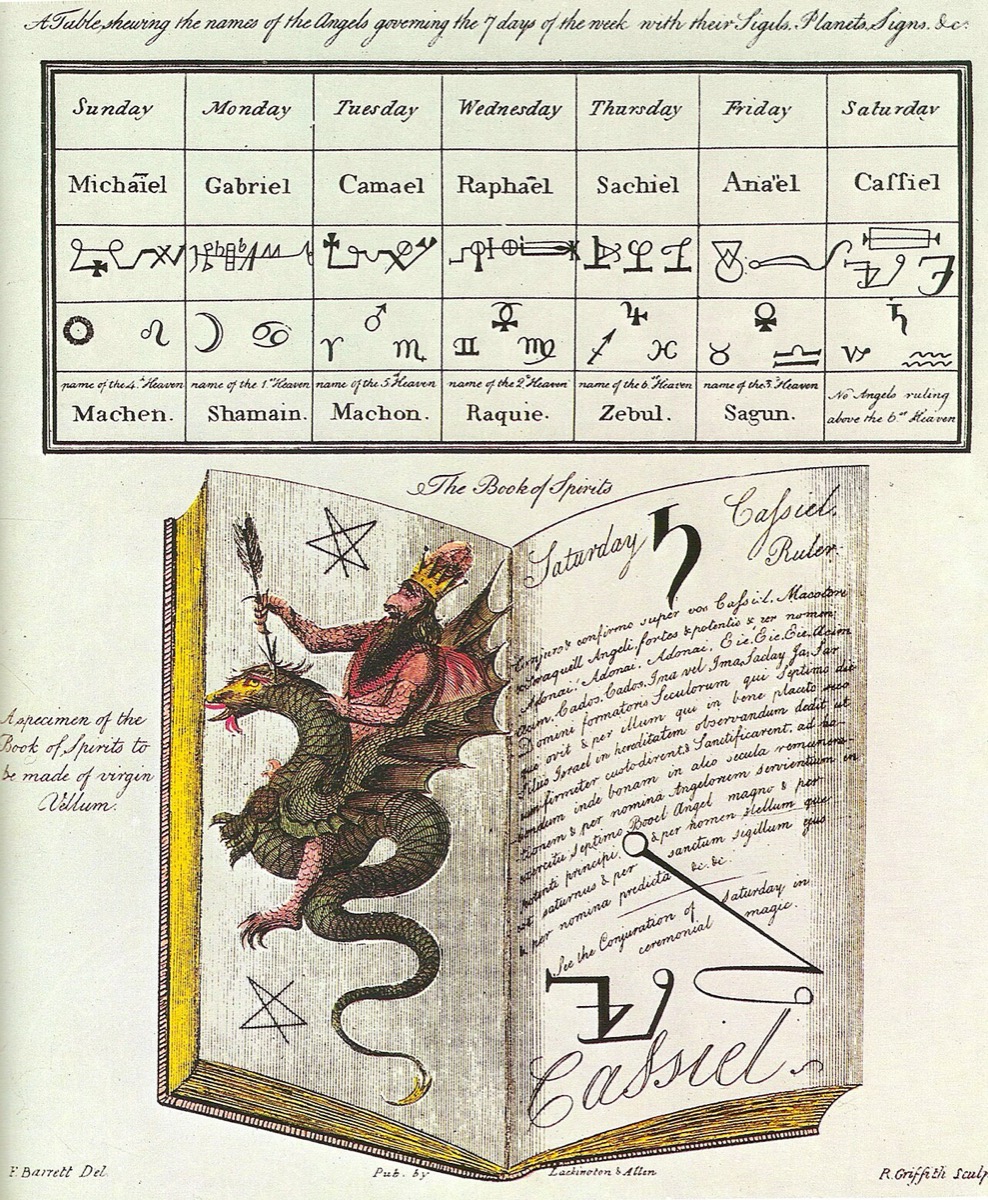 A Table, shewing the names of the Angels governing the 7 days of the week with their Sigils, Planets, Signs, &c.
Sunday Monday Tuesday Wednesday Thursday Friday Saturday
Michaïel Gabriel Camael Raphael Sachiel Ana"el Caſsiel
name of the 4.th Heaven name of the 1.st Heaven name of the 5.th Heaven name of the 2.d Heaven name of the 6.th Heaven name of the 3.d Heaven No Angels ruling
Machen. Shamain. Machon. Raquie. Zebul. Sagun. above the 6.th Heaven
The Book of Spirits
Saturday ♄ Caſsiel.
Ruler.
Conjuro & confirmo super vos Caſsiel. Macoton
Angeli fortes & potentis & per nomen
Adonai. Adonai. Adonai. Eie. Eie. Eie. Acim
Acim. Cados. Cados. Ina vel Ima. Saday Ja. Sar
Domini formatoris Seculorum qui Septimo die
quiovit & per illum qui in bene placito suo
filus Israel in hereditatem observandum dedit ut
eum firmiter custodirent & Santificarent. ad ha-
bendum inde bonam in alio secula remunera-
tionem & per nomina Angelorum servientium in
exercitu Septimo Booel Angel magno & per
potenti principi. & per nomen stellum que
est saturnus & per sanctum sigillum ejus
& per nomina predicta &c. &c.
See the Conjuration of Saturday in
ceremonial magic.
Caſsiel
A specimen of the
Book of Spirits to
be made of virgin
Vellum.
F. Barrett Del. Pub. by Lackington & Allen R. Griffith Sculp